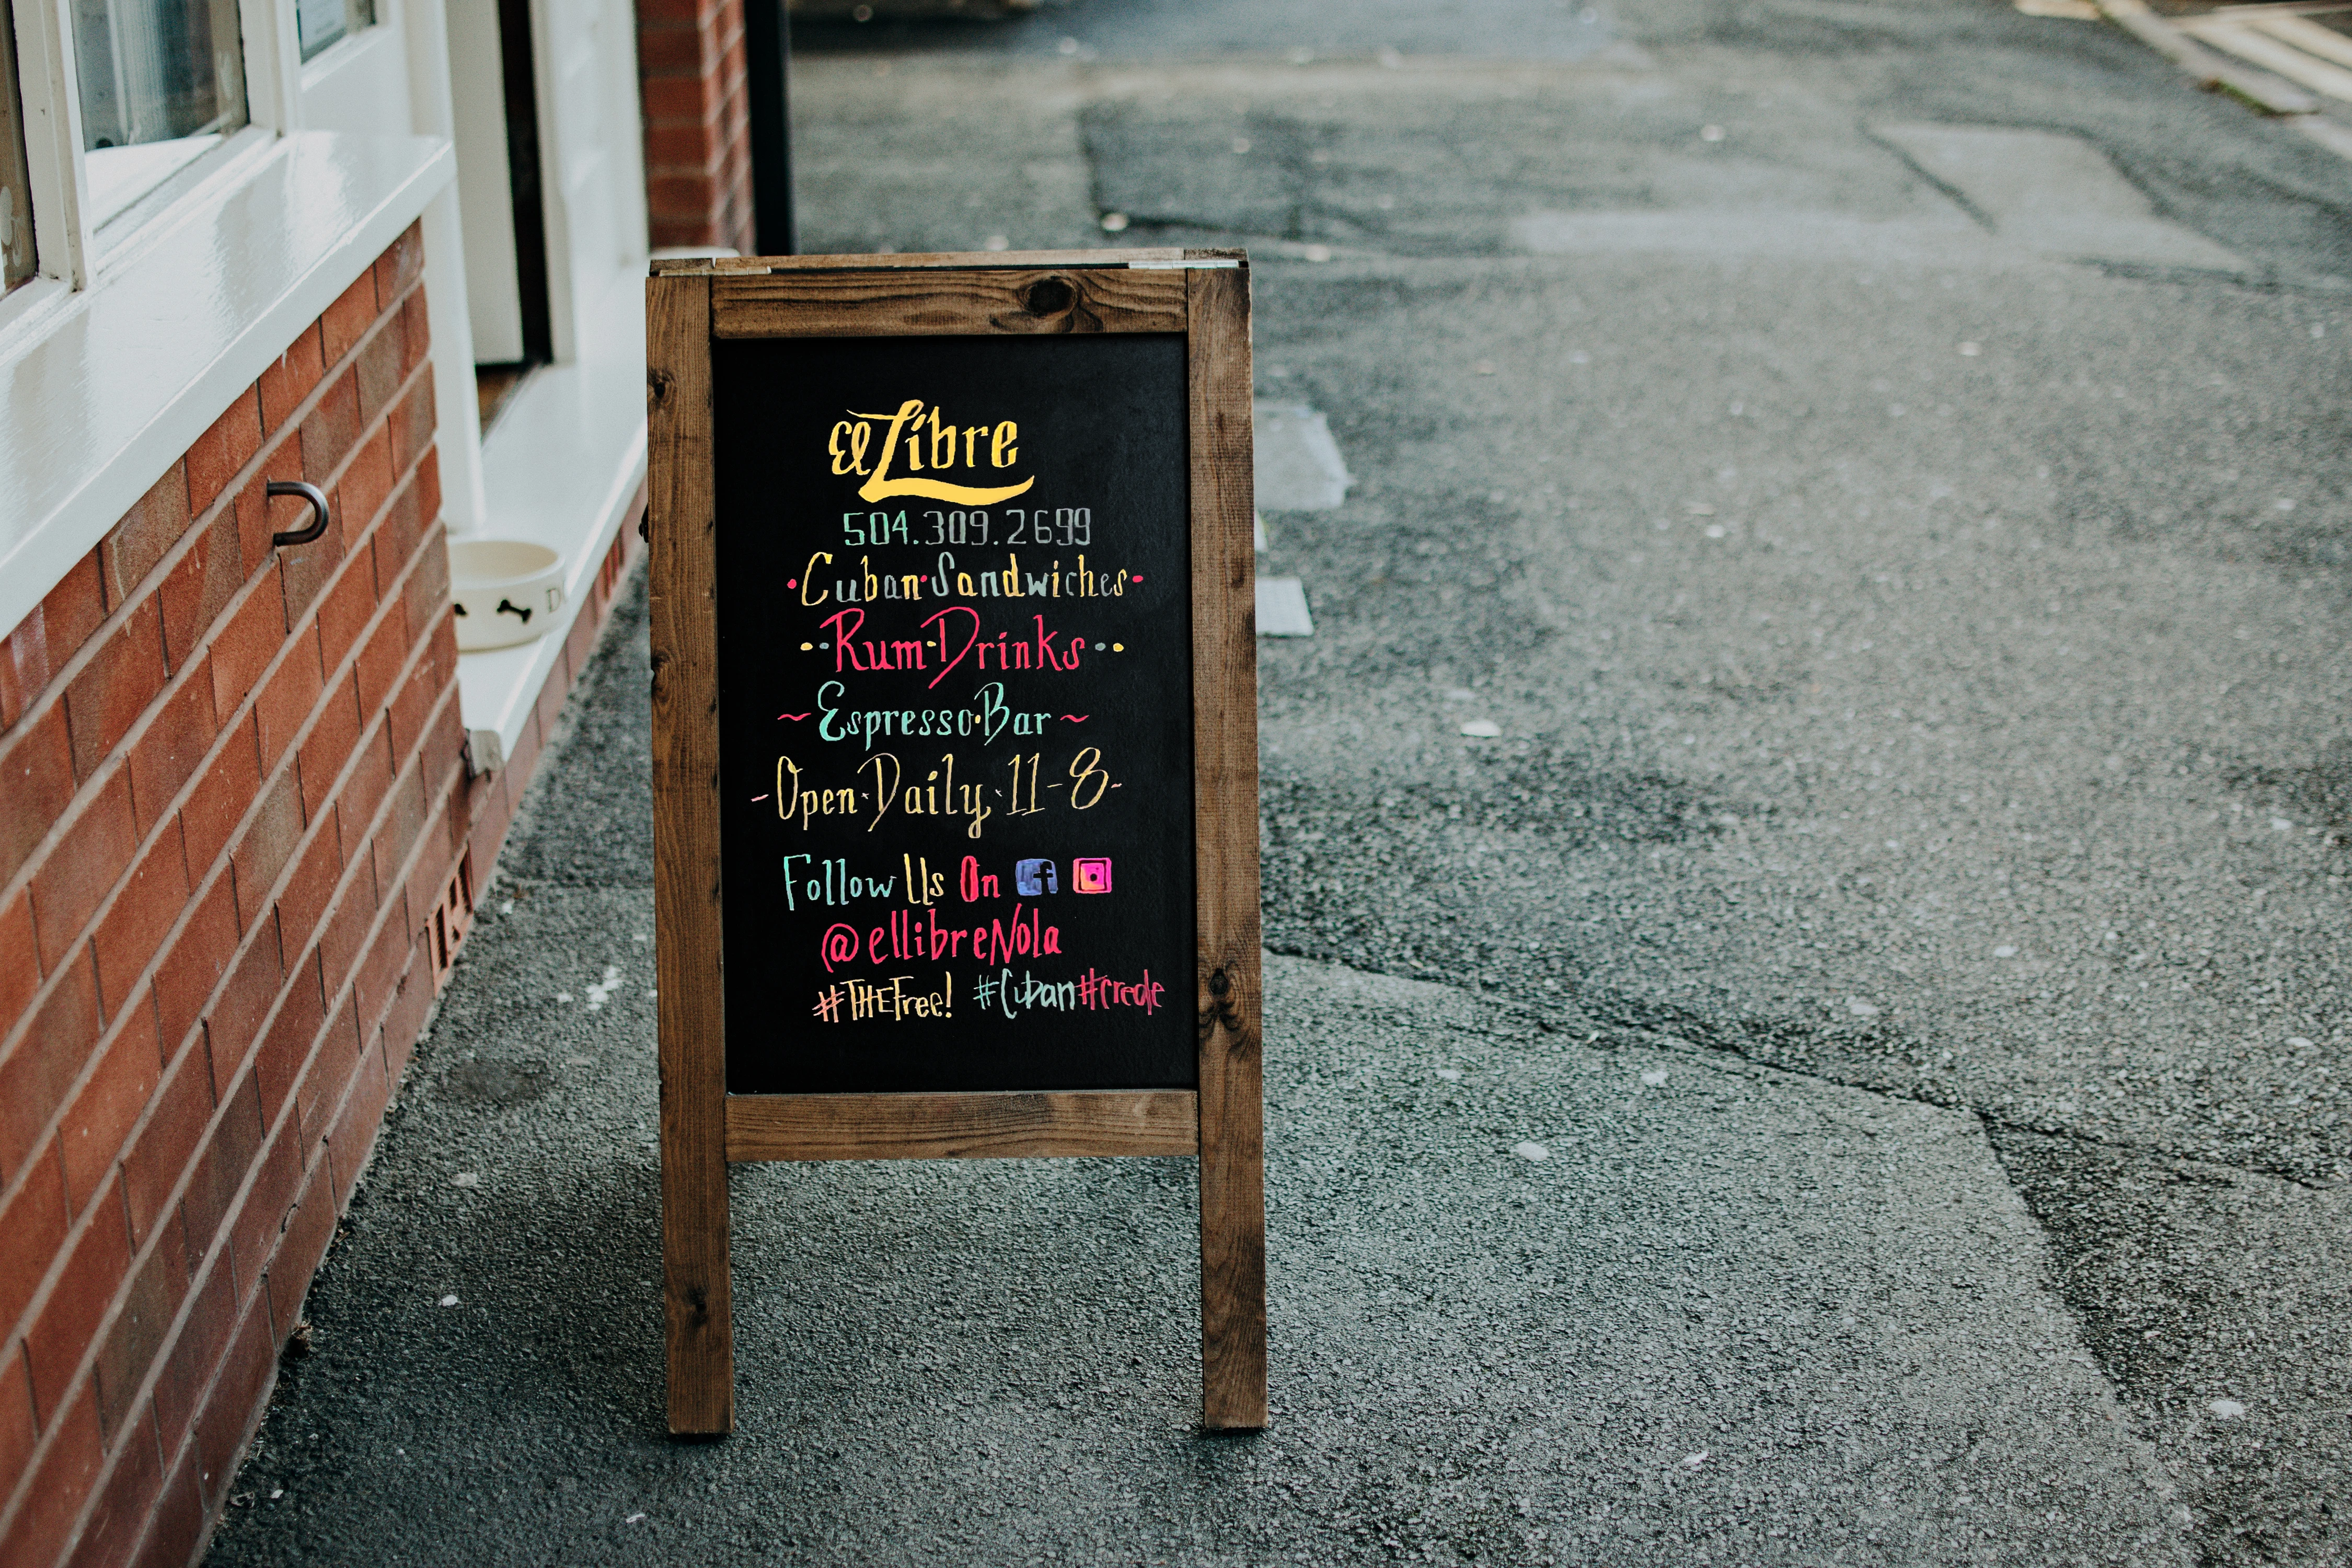 el Libre
504.309.2699
Cuban·Sandwiches
Rum·Drinks
~Espresso·Bar~
-Open·Daily·11-8-
Follow Us On
@ellibreNola
#THEFree! #Cuban#creole